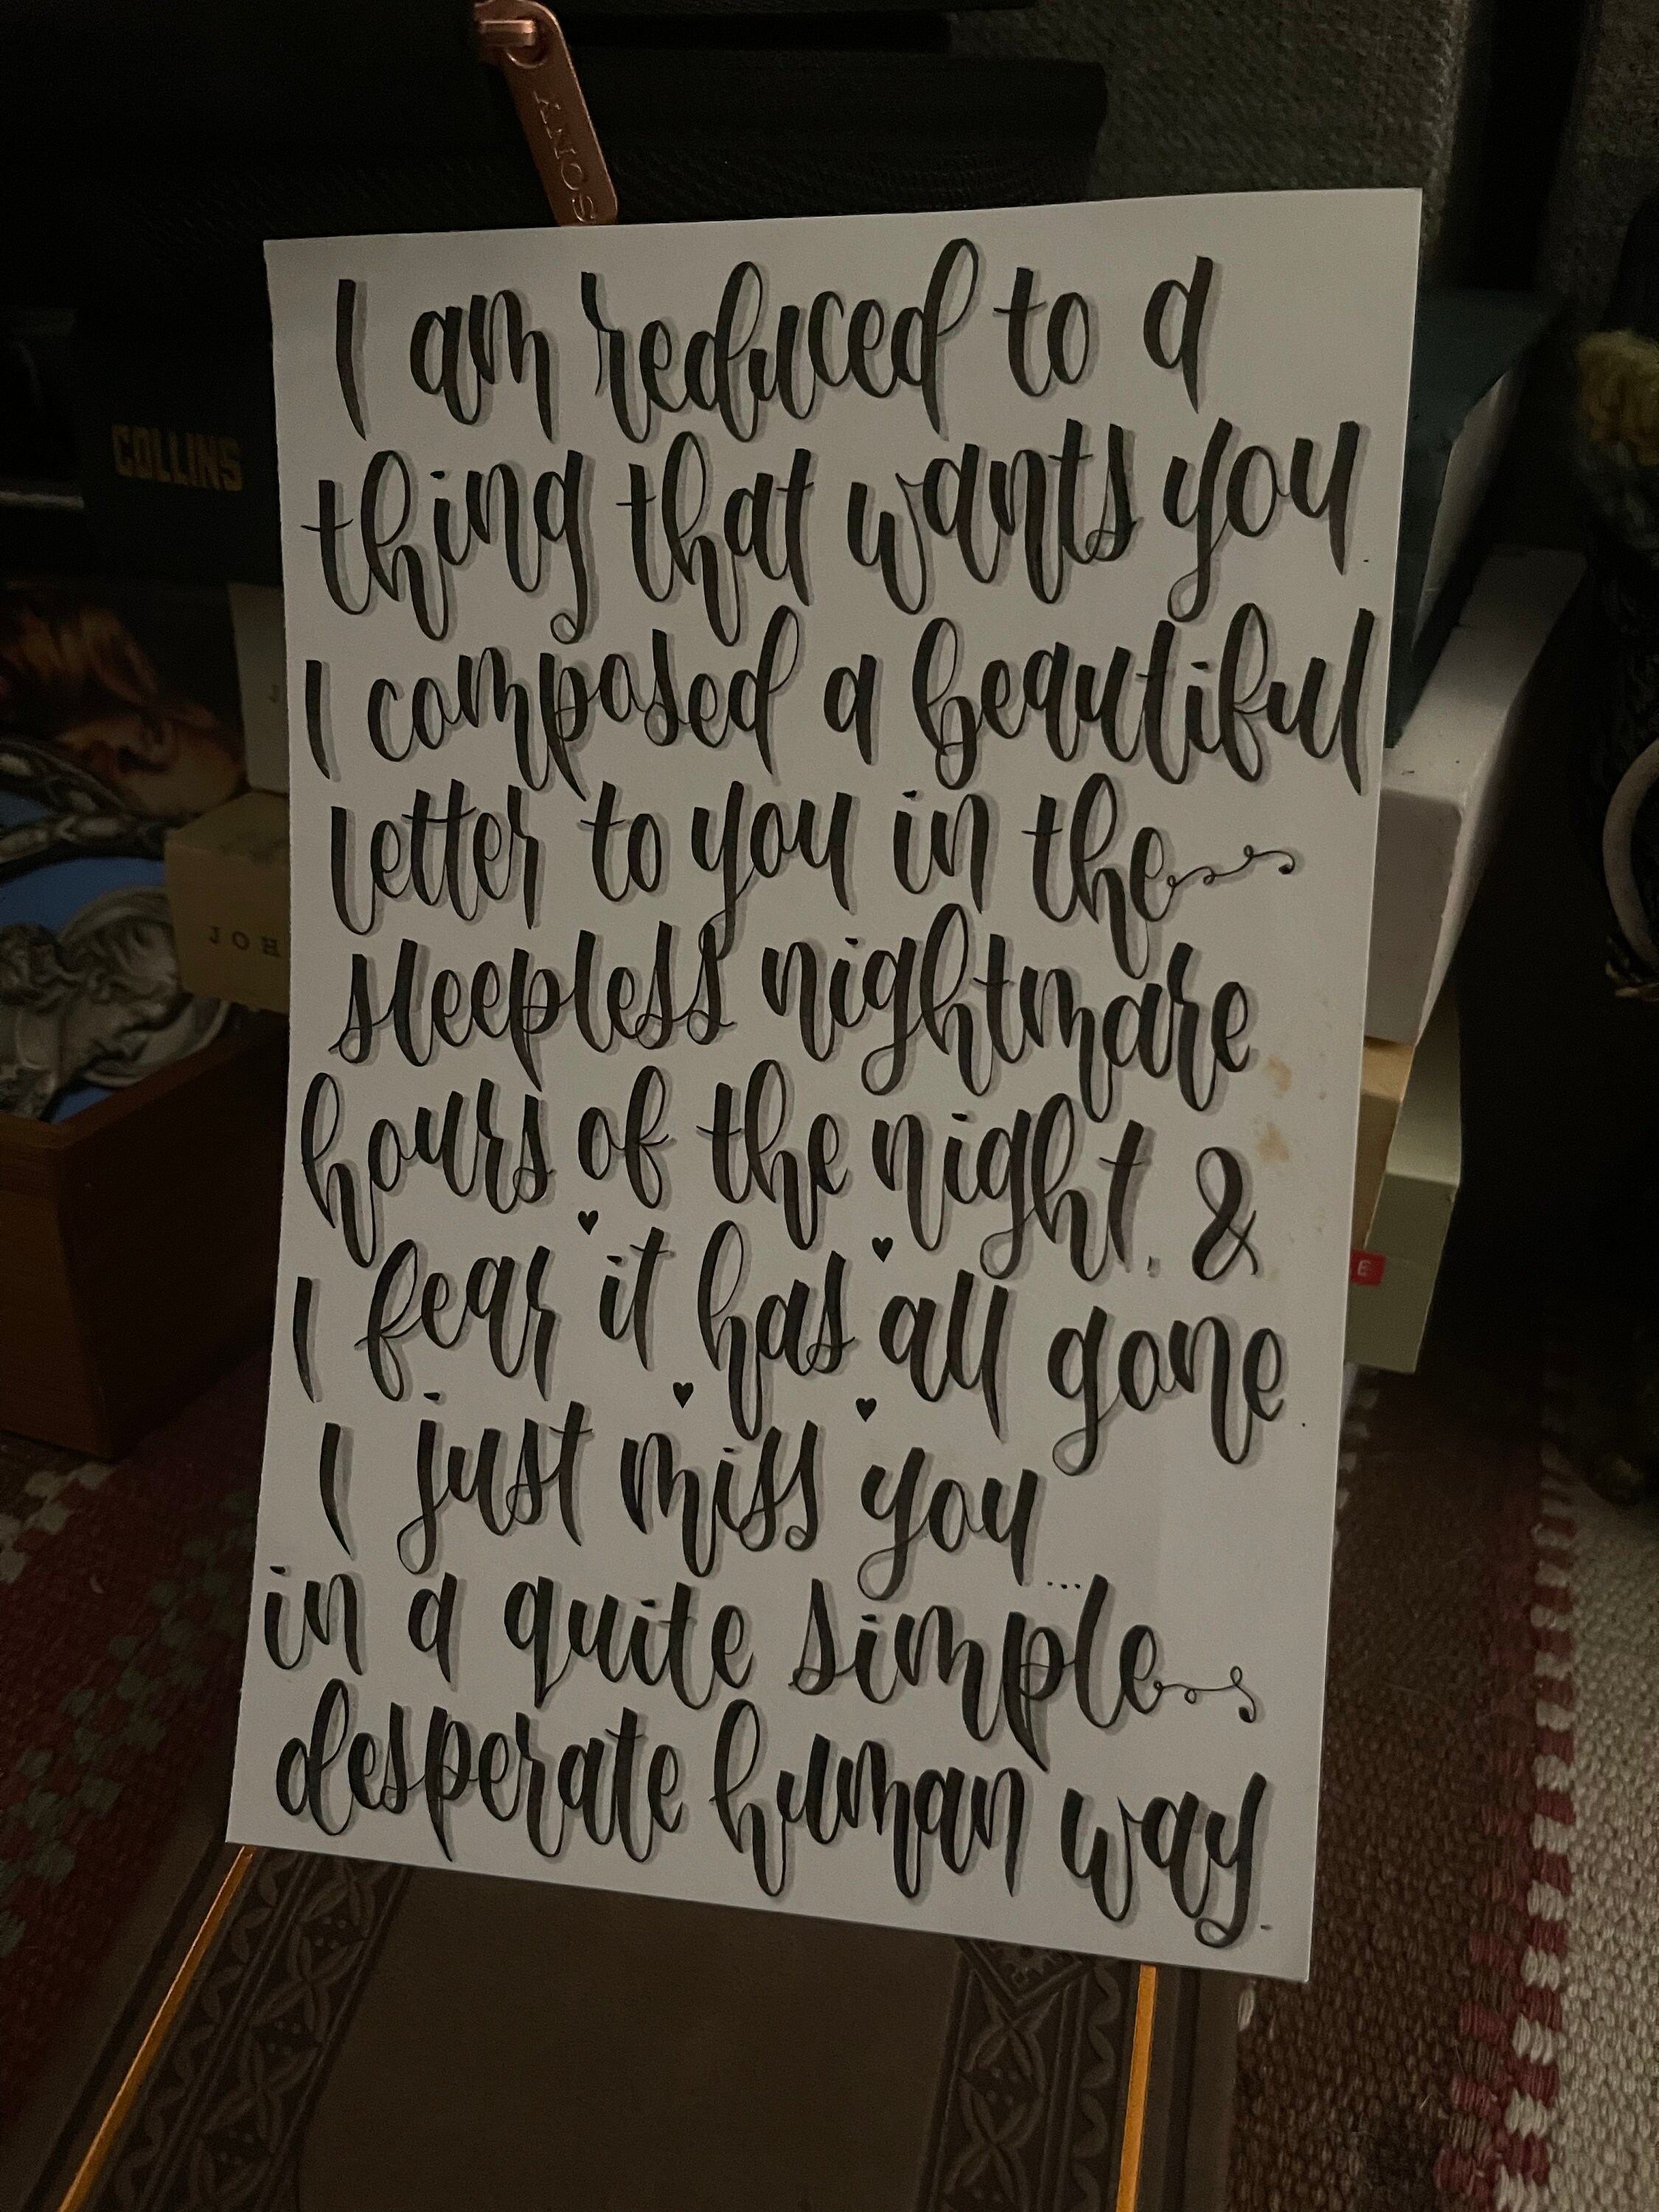 SONY
I am reduced to a
thing that wants you.
I composed a beautiful
letter to you in the
sleepless nightmare
hours of the night, &
I fear it has all gone.
I just miss you...
in a quite simple
desperate human way.
COLLINS
J
JOH
E